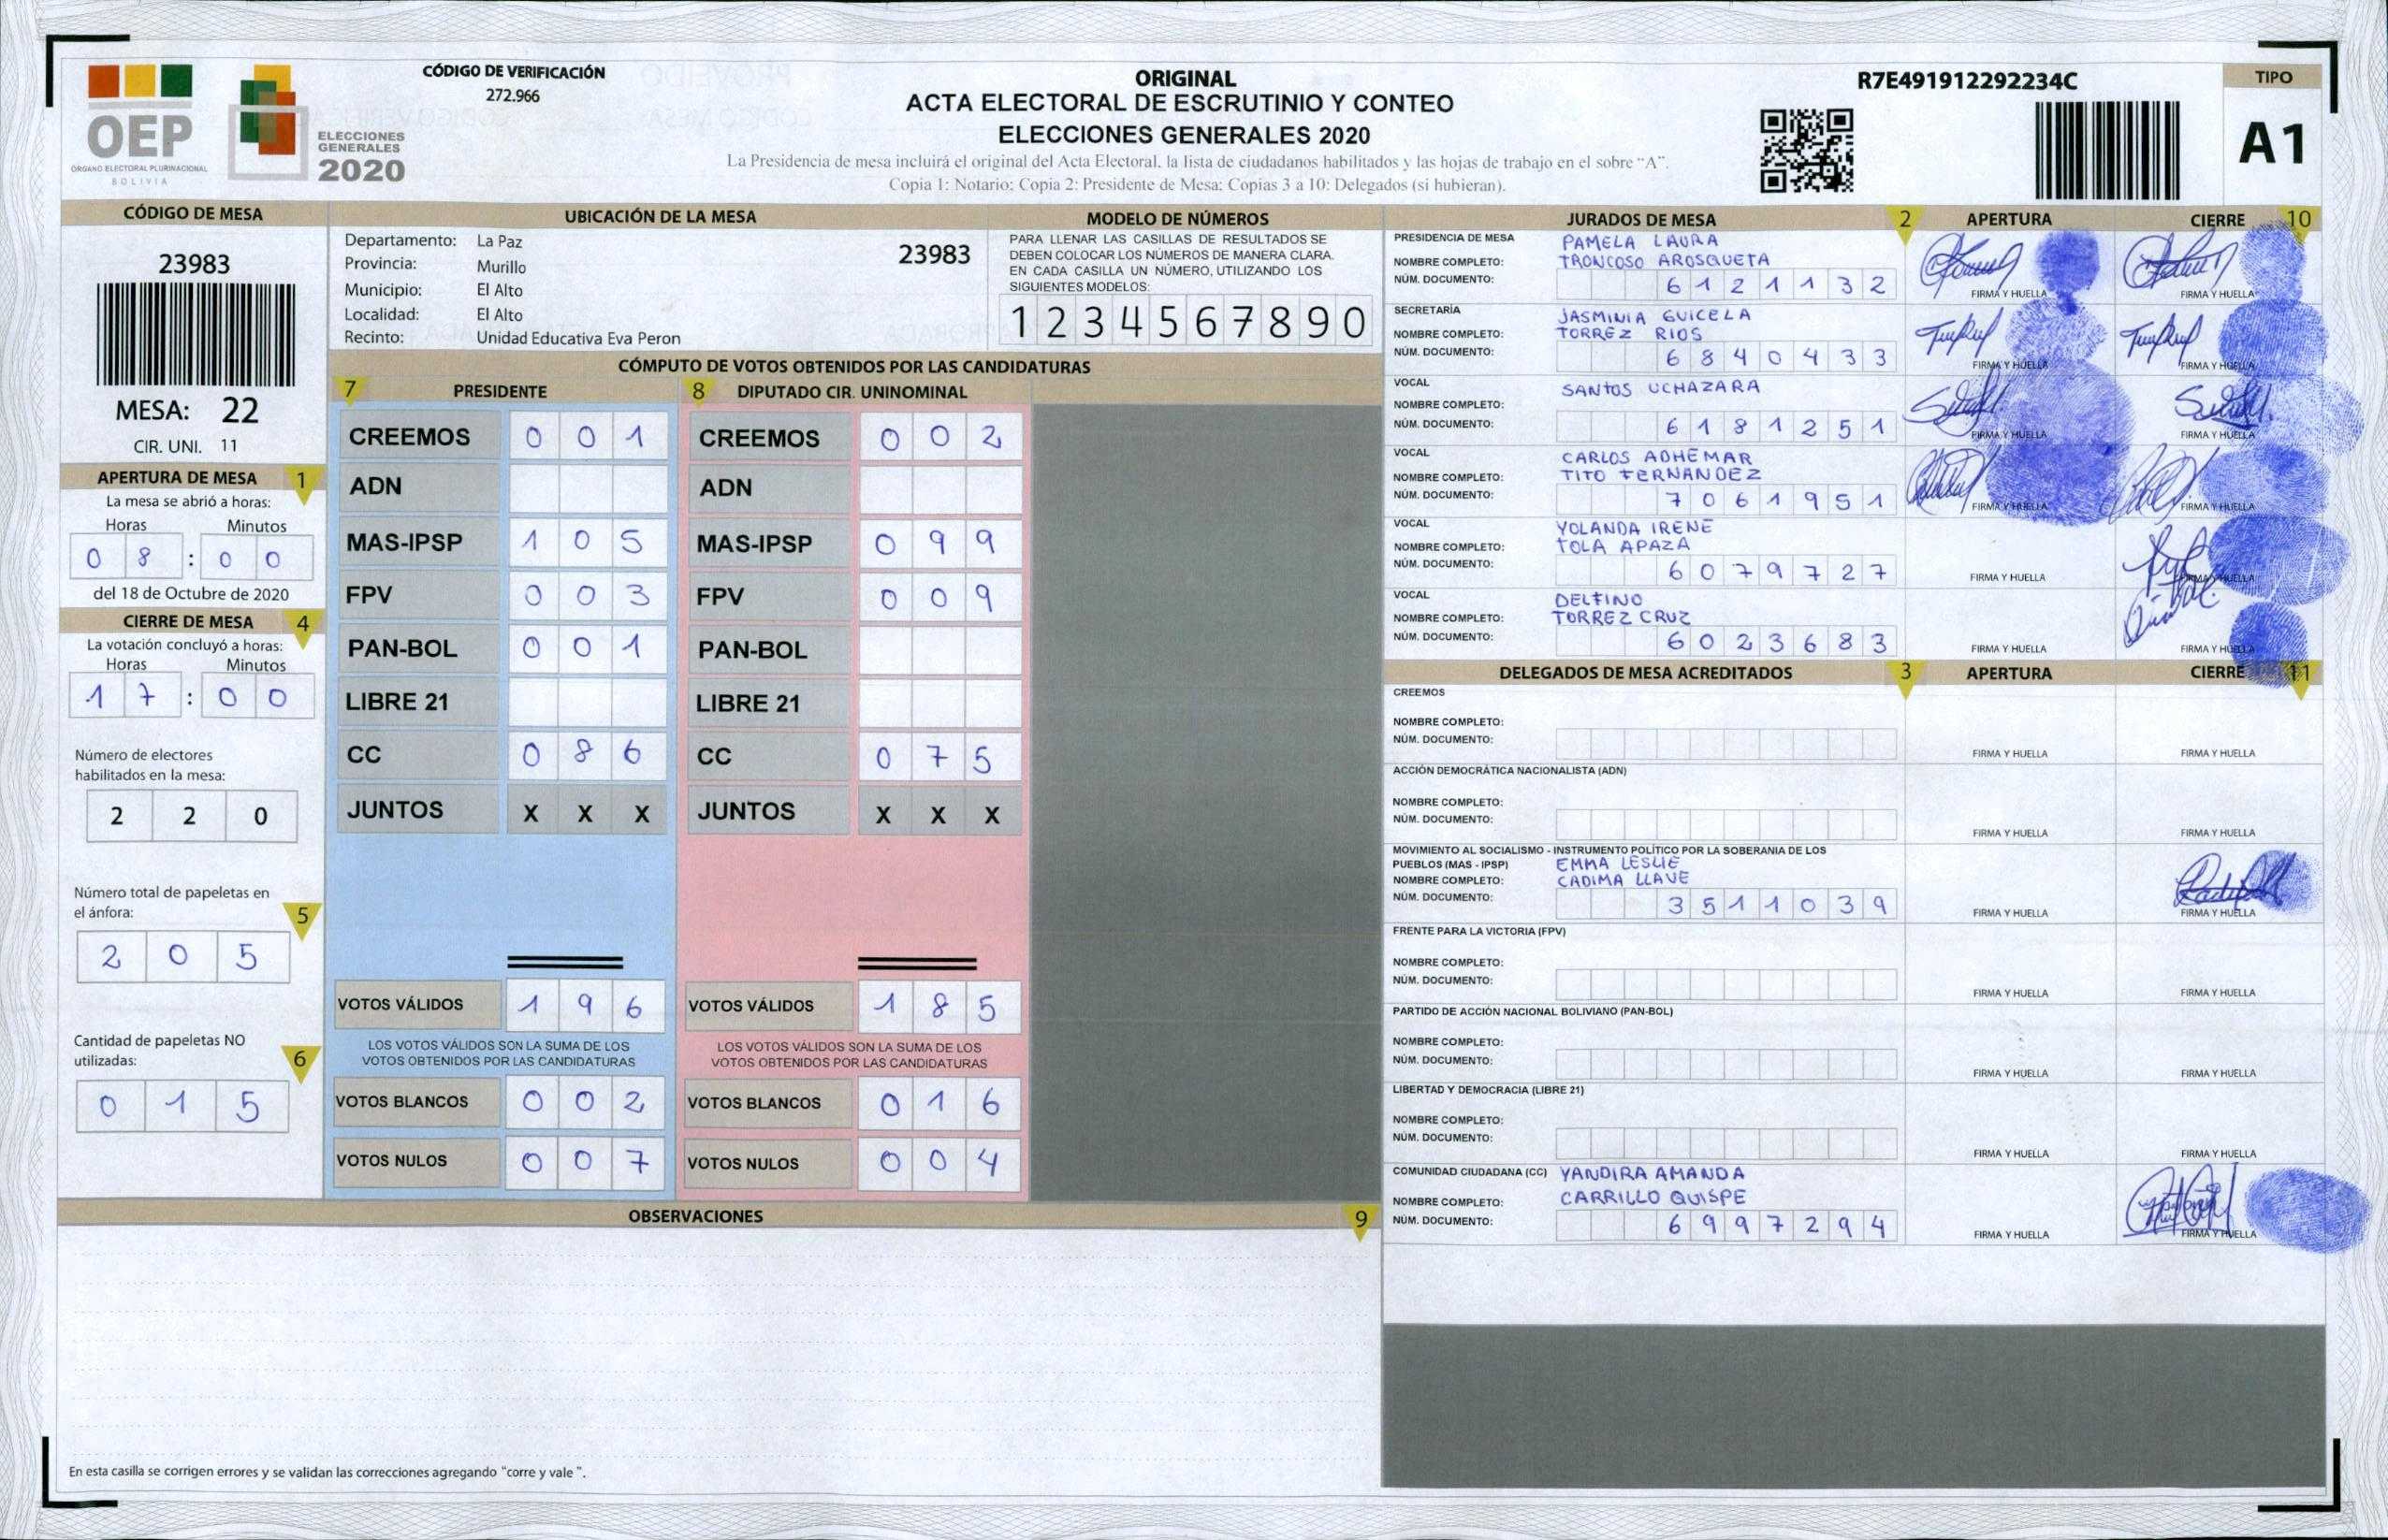 OEP
ÓRGANO ELECTORAL PLURINACIONAL
BOLIVIA
ELECCIONES
GENERALES
2020
CÓDIGO DE VERIFICACIÓN
272.966
ORIGINAL
ACTA ELECTORAL DE ESCRUTINIO Y CONTEO
ELECCIONES GENERALES 2020
La Presidencia de mesa incluirá el original del Acta Electoral, la lista de ciudadanos habilitados y las hojas de trabajo en el sobre “A”.
Copia 1: Notario; Copia 2: Presidente de Mesa; Copias 3 a 10: Delegados (si hubieran).
R7E491912292234C
TIPO
A1
CÓDIGO DE MESA
23983
MESA: 22
CIR. UNI. 11
APERTURA DE MESA 1
La mesa se abrió a horas:
Horas Minutos
0 8 : 0 0
del 18 de Octubre de 2020
CIERRE DE MESA 4
La votación concluyó a horas:
Horas Minutos
1 7 : 0 0
Número de electores
habilitados en la mesa:
2 2 0
Número total de papeletas en
el ánfora: 5
2 0 5
Cantidad de papeletas NO
utilizadas: 6
0 1 5
UBICACIÓN DE LA MESA
Departamento: La Paz 23983
Provincia: Murillo
Municipio: El Alto
Localidad: El Alto
Recinto: Unidad Educativa Eva Peron
MODELO DE NÚMEROS
PARA LLENAR LAS CASILLAS DE RESULTADOS SE
DEBEN COLOCAR LOS NÚMEROS DE MANERA CLARA.
EN CADA CASILLA UN NÚMERO, UTILIZANDO LOS
SIGUIENTES MODELOS:
1 2 3 4 5 6 7 8 9 0
CÓMPUTO DE VOTOS OBTENIDOS POR LAS CANDIDATURAS
7 PRESIDENTE
CREEMOS 0 0 1
ADN
MAS-IPSP 1 0 5
FPV 0 0 3
PAN-BOL 0 0 1
LIBRE 21
CC 0 8 6
JUNTOS X X X
VOTOS VÁLIDOS 1 9 6
LOS VOTOS VÁLIDOS SON LA SUMA DE LOS
VOTOS OBTENIDOS POR LAS CANDIDATURAS
VOTOS BLANCOS 0 0 2
VOTOS NULOS 0 0 7
8 DIPUTADO CIR. UNINOMINAL
CREEMOS 0 0 2
ADN
MAS-IPSP 0 9 9
FPV 0 0 9
PAN-BOL
LIBRE 21
CC 0 7 5
JUNTOS X X X
VOTOS VÁLIDOS 1 8 5
LOS VOTOS VÁLIDOS SON LA SUMA DE LOS
VOTOS OBTENIDOS POR LAS CANDIDATURAS
VOTOS BLANCOS 0 1 6
VOTOS NULOS 0 0 4
OBSERVACIONES 9
En esta casilla se corrigen errores y se validan las correcciones agregando "corre y vale ".
JURADOS DE MESA 2 APERTURA CIERRE 10
PRESIDENCIA DE MESA PAMELA LAURA
NOMBRE COMPLETO: TRONCOSO AROSQUETA
NÚM. DOCUMENTO: 6 1 2 1 1 3 2
FIRMA Y HUELLA FIRMA Y HUELLA
SECRETARÍA JASMINIA GUICELA
NOMBRE COMPLETO: TORREZ RIOS
NÚM. DOCUMENTO: 6 8 4 0 4 3 3
FIRMA Y HUELLA FIRMA Y HUELLA
VOCAL SANTOS UCHAZARA
NOMBRE COMPLETO:
NÚM. DOCUMENTO: 6 1 8 1 2 5 1
FIRMA Y HUELLA FIRMA Y HUELLA
VOCAL CARLOS ADHEMAR
NOMBRE COMPLETO: TITO FERNANDEZ
NÚM. DOCUMENTO: 7 0 6 1 9 5 1
FIRMA Y HUELLA FIRMA Y HUELLA
VOCAL YOLANDA IRENE
NOMBRE COMPLETO: TOLA APAZA
NÚM. DOCUMENTO: 6 0 7 9 7 2 7
FIRMA Y HUELLA FIRMA Y HUELLA
VOCAL DELFINO
NOMBRE COMPLETO: TORREZ CRUZ
NÚM. DOCUMENTO: 6 0 2 3 6 8 3
FIRMA Y HUELLA FIRMA Y HUELLA
DELEGADOS DE MESA ACREDITADOS 3 APERTURA CIERRE 11
CREEMOS
NOMBRE COMPLETO:
NÚM. DOCUMENTO:
FIRMA Y HUELLA FIRMA Y HUELLA
ACCIÓN DEMOCRÁTICA NACIONALISTA (ADN)
NOMBRE COMPLETO:
NÚM. DOCUMENTO:
FIRMA Y HUELLA FIRMA Y HUELLA
MOVIMIENTO AL SOCIALISMO - INSTRUMENTO POLÍTICO POR LA SOBERANIA DE LOS
PUEBLOS (MAS - IPSP) EMMA LESLIE
NOMBRE COMPLETO: CADIMA LLAVE
NÚM. DOCUMENTO: 3 5 1 1 0 3 9
FIRMA Y HUELLA FIRMA Y HUELLA
FRENTE PARA LA VICTORIA (FPV)
NOMBRE COMPLETO:
NÚM. DOCUMENTO:
FIRMA Y HUELLA FIRMA Y HUELLA
PARTIDO DE ACCIÓN NACIONAL BOLIVIANO (PAN-BOL)
NOMBRE COMPLETO:
NÚM. DOCUMENTO:
FIRMA Y HUELLA FIRMA Y HUELLA
LIBERTAD Y DEMOCRACIA (LIBRE 21)
NOMBRE COMPLETO:
NÚM. DOCUMENTO:
FIRMA Y HUELLA FIRMA Y HUELLA
COMUNIDAD CIUDADANA (CC) YANDIRA AMANDA
NOMBRE COMPLETO: CARRILLO QUISPE
NÚM. DOCUMENTO: 6 9 9 7 2 9 4
FIRMA Y HUELLA FIRMA Y HUELLA